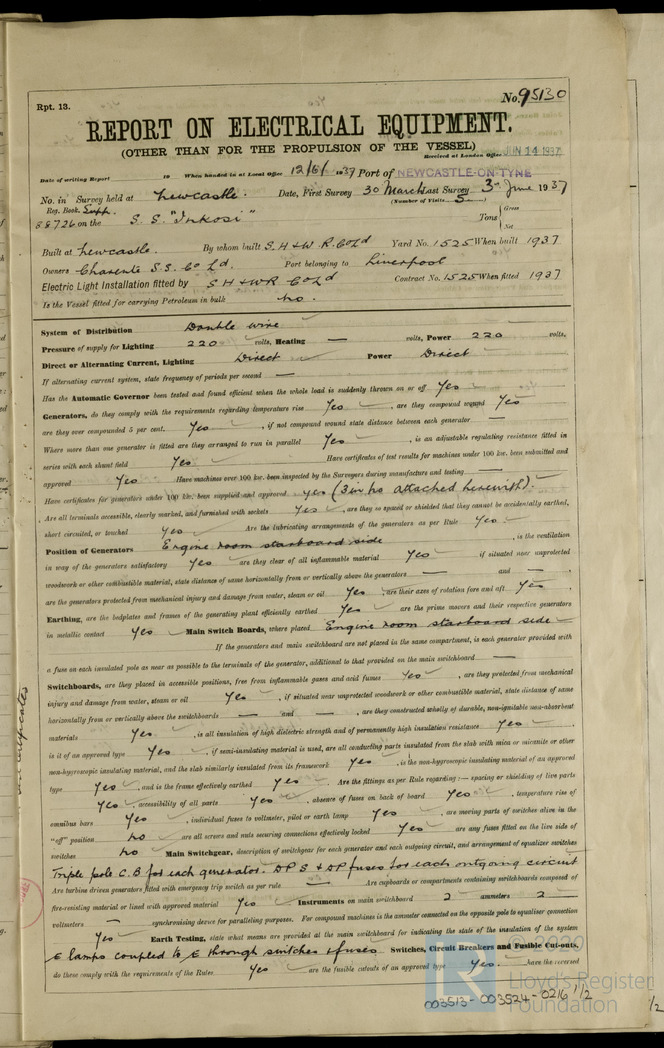 Rpt. 13.
No. 95130
REPORT ON ELECTRICAL EQUIPMENT.
(OTHER THAN FOR THE PROPULSION OF THE VESSEL)
Received at London Office JUN 14 1937
Date of writing Report 19 When handed in at Local Office 12/6/ 1937 Port of NEWCASTLE-ON-TYNE
No. in Survey held at Newcastle. Date, First Survey 30 March Last Survey 3rd June 1937
Reg. Book. Supp. (Number of Visits 5)
88726 on the S. S. "Inkosi" Tons { Gross Net
Built at Newcastle. By whom built S H & W. R. Co Ld Yard No. 1525 When built 1937
Owners Charente S.S. Co Ld. Port belonging to Liverpool
Electric Light Installation fitted by S H & W R Co Ld Contract No. 1525 When fitted 1937
Is the Vessel fitted for carrying Petroleum in bulk No.
System of Distribution Double wire
Pressure of supply for Lighting 220 volts, Heating — volts, Power 220 volts,
Direct or Alternating Current, Lighting Direct Power Direct
If alternating current system, state frequency of periods per second —
Has the Automatic Governor been tested and found efficient when the whole load is suddenly thrown on or off Yes
Generators, do they comply with the requirements regarding temperature rise Yes, are they compound wound Yes
are they over compounded 5 per cent. Yes, if not compound wound state distance between each generator —
Where more than one generator is fitted are they arranged to run in parallel Yes, is an adjustable regulating resistance fitted in
series with each shunt field Yes Have certificates of test results for machines under 100 kw. been submitted and
approved Yes Have machines over 100 kw. been inspected by the Surveyors during manufacture and testing —
Have certificates for generators under 100 kw. been supplied and approved Yes (3 in No attached herewith).
Are all terminals accessible, clearly marked, and furnished with sockets Yes, are they so spaced or shielded that they cannot be accidentally earthed,
short circuited, or touched Yes Are the lubricating arrangements of the generators as per Rule Yes
Position of Generators Engine room starboard side, is the ventilation
in way of the generators satisfactory Yes are they clear of all inflammable material Yes if situated near unprotected
woodwork or other combustible material, state distance of same horizontally from or vertically above the generators — and —,
are the generators protected from mechanical injury and damage from water, steam or oil Yes, are their axes of rotation fore and aft Yes.
Earthing, are the bedplates and frames of the generating plant efficiently earthed Yes are the prime movers and their respective generators
in metallic contact Yes Main Switch Boards, where placed Engine room starboard side
If the generators and main switchboard are not placed in the same compartment, is each generator provided with
a fuse on each insulated pole as near as possible to the terminals of the generator, additional to that provided on the main switchboard —
Switchboards, are they placed in accessible positions, free from inflammable gases and acid fumes Yes, are they protected from mechanical
injury and damage from water, steam or oil Yes, if situated near unprotected woodwork or other combustible material, state distance of same
horizontally from or vertically above the switchboards — and —, are they constructed wholly of durable, non-ignitable non-absorbent
materials Yes, is all insulation of high dielectric strength and of permanently high insulation resistance Yes,
is it of an approved type Yes, if semi-insulating material is used, are all conducting parts insulated from the slab with mica or micanite or other
non-hygroscopic insulating material, and the slab similarly insulated from its framework Yes, is the non-hygroscopic insulating material of an approved
type Yes, and is the frame effectively earthed Yes. Are the fittings as per Rule regarding:— spacing or shielding of live parts
Yes, accessibility of all parts Yes, absence of fuses on back of board Yes, temperature rise of
omnibus bars Yes, individual fuses to voltmeter, pilot or earth lamp Yes, are moving parts of switches alive in the
"off" position No are all screws and nuts securing connections effectively locked Yes are any fuses fitted on the live side of
switches No Main Switchgear, description of switchgear for each generator and each outgoing circuit, and arrangement of equalizer switches
Triple pole C.B for each generator. D P S & DP fuses for each outgoing circuit
Are turbine driven generators fitted with emergency trip switch as per rule — Are cupboards or compartments containing switchboards composed of
fire-resisting material or lined with approved material Yes Instruments on main switchboard 2 ammeters 2
voltmeters — synchronising device for paralleling purposes. For compound machines is the ammeter connected on the opposite pole to equaliser connection
Yes Earth Testing, state what means are provided at the main switchboard for indicating the state of the insulation of the system
E lamps coupled to E through switches & fuses Switches, Circuit Breakers and Fusible Cut-outs,
do these comply with the requirements of the Rules Yes are the fusible cutouts of an approved type Yes. have the reversed
Lloyd's Register
Foundation
003513-003524-0216 1/2